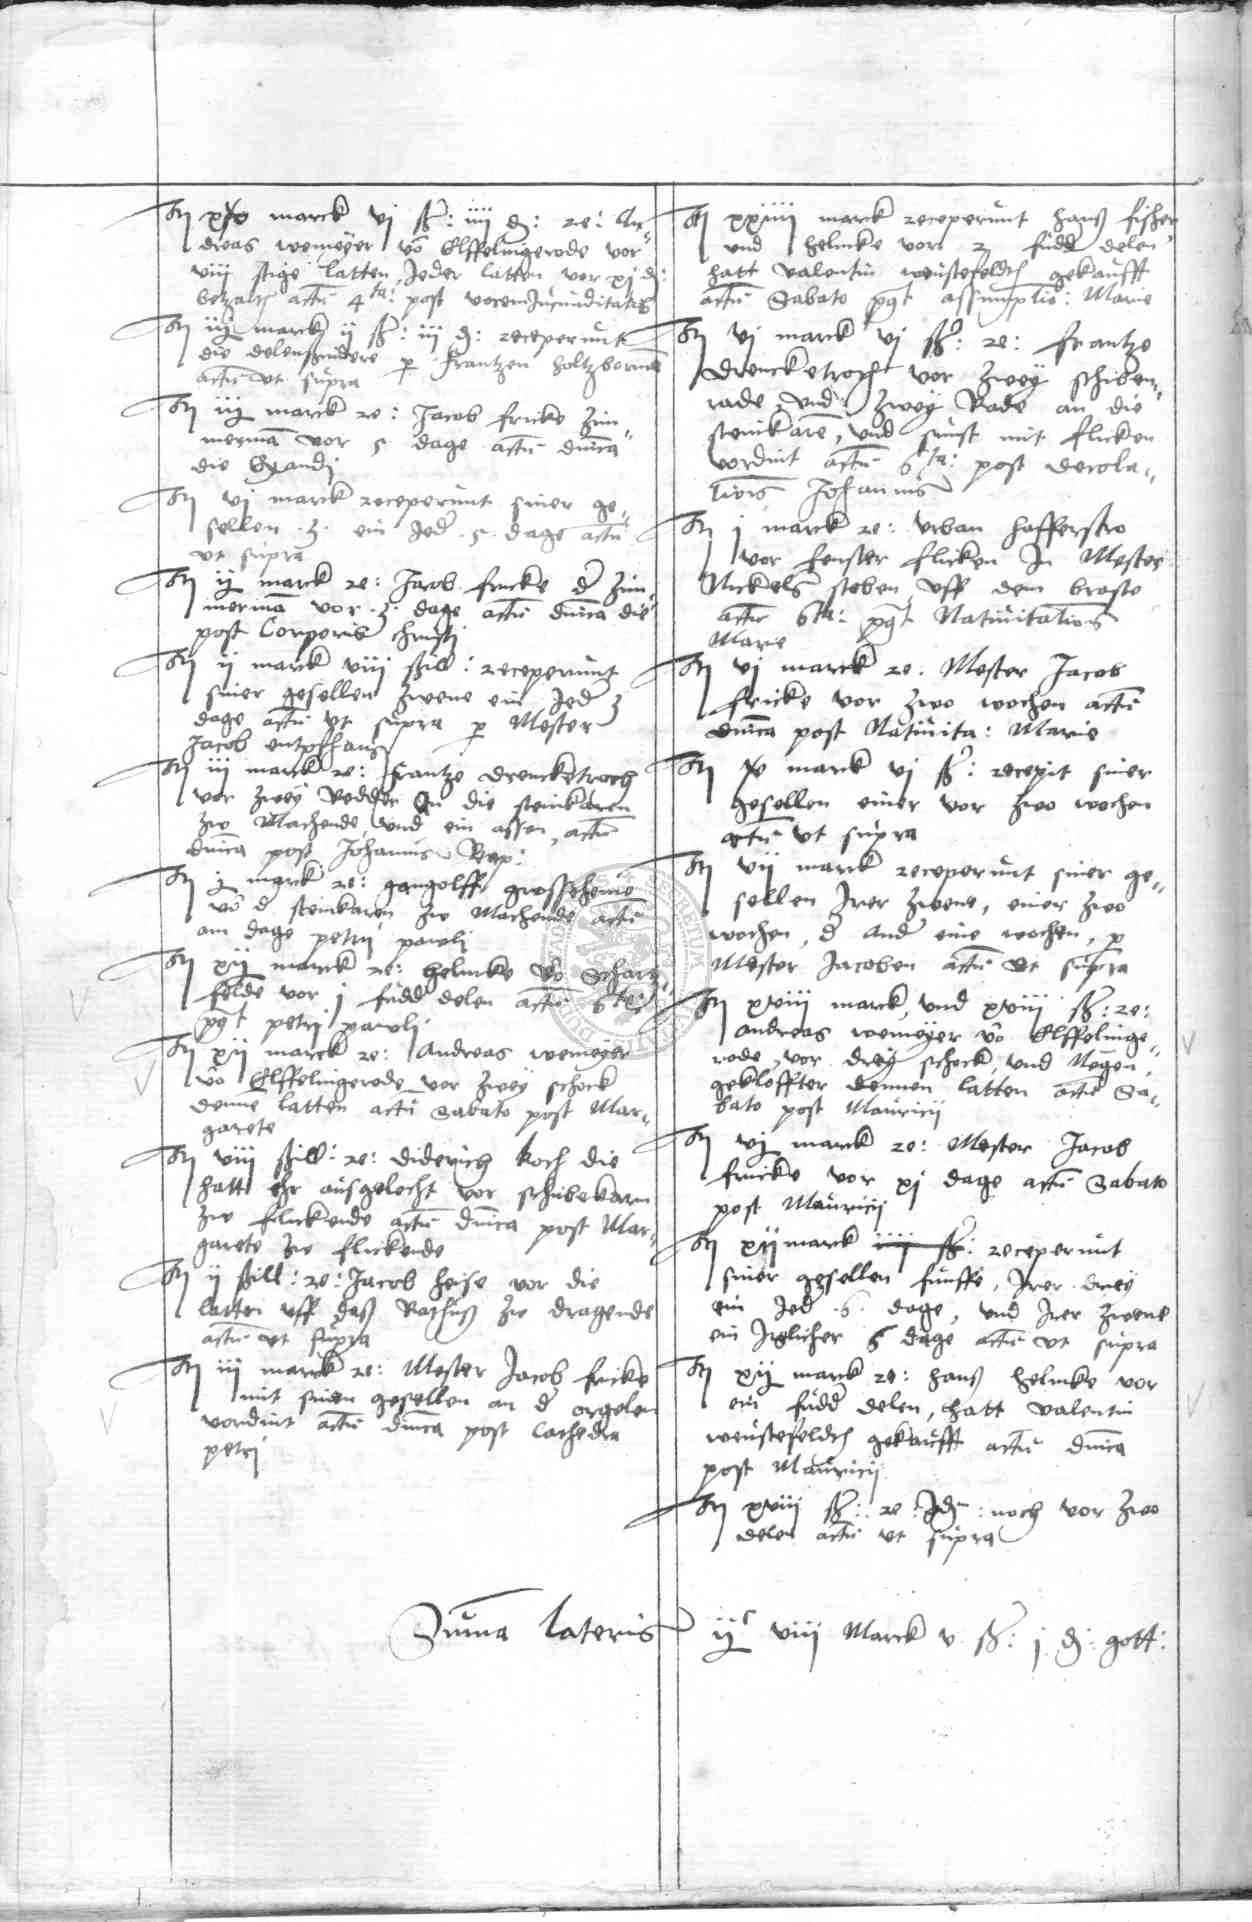 It xxv marck vj ß: iiij d: re: An-
dreas wemeyer vō Elffelingerode vor
viij stige latten, Jeder latten vor xj d:
betzalt actū 4ta: post vocem Jucunditatis
It iij marck ij ß: iij d: receperunt
die delensnidere p frantzen holtzbornn
actū vt supra
It iij marck re: Jacob fricke Zim-
mermā vor 5 dage actū dnica
die Exaudi
It vj marck receperunt siner ge-
sellen .3. ein Jed' .5. dage actū
vt supra
It ij marck re: Jacob fricke d' Zim-
mermā vor .3. dage actū dnica die
post Corporis christi
It ij marck viij ßill: receperunt
siner gesellen zwene ein Jed' 3
dage actū vt supra p Mester
Jacob entpfhang
It iij marck re: frantze Drencketroch
vor zwey Redder In die steinkaren
zw Machende, vnd ein assen, actū
dnica post Johannis Bap:
It j marck re: gangolff grosschene
vō d' steinkaren zw Machende actū
am dage petri pauli
It xij marck re: helmke vō Schartz-
felde vor j fudd' delen actū 6ta:
pt petri pauli
It xij marck re: Andreas wemeyer
vō Elffelingerode vor zwey schock
denne latten actū Sabato post Mar-
garete
It viij ßill: re: diderich koch die
hatt ehr ausgelecht vor schubekarn
zw flickende actū dnica post Mar-
garete zw flickende
It ij ßill: re: Jacob heise vor die
latten vff daß Rathuß zw dragende
actū vt supra
It iij marck re: Mester Jacob fricke
mit sinen gesellen an d' orgelen
vordint actū dnica post Cathedra
petri
It xxiiij marck receperunt hanß fisher
vnd helmke vor 2 fudd' delen
hatt valentin weustefeldt gekaufft
actū Sabato pt assumptio: Marie
It vj marck vj ß: re: frantze
Drencketroch vor zwey schiben-
rade, vnd zwey Rade an die
steinkare, vnd sunst mit flicken
vordint actū 6ta: post decola-
tions Johannis
It j marck re: vrban hafferstro
vor fenster flicken In Mester
Nickels stoben vff dem broste
actū 6ta: pt Natiuitations
Marie
It vj marck re: Mester Jacob
fricke vor zwo wochen actū
dnica post Natiuita: Marie
It v marck vj ß: recepit siner
gesellen einer vor zwo wochen
actū vt supra
It vij marck receperunt siner ge-
sellen Jrer zwene, einer zwo
wochen, d' And' eine wochen, p
Mester Jacoben actū vt supra
It xviij marck, vnd xviij ß: re:
Andreas wemeyer vō Elffelinge-
rode, vor drey schock, vnd Negen
gekloffter dennen latten actū Sa-
bato post Mauricij
It vj marck re: Mester Jacob
fricke vor xj dage actū Sabato
post Mauricij
It xij marck iiij ß: receperunt
siner gesellen funffe, Jrer drey
ein Jed' .6. dage, vnd Jrer zwene
ein Jglicher 5 dage actū vt supra
It xij marck re: hanß helmke vor
ein fudd' delen, hatt valentin
weustefeldt gekaufft actū dnica
post Mauricij
It xviij ß: re: Jd': noch vor zwo
delen actū vt supra
Suma lateris ijc viij Marck v ß: j d: gott: